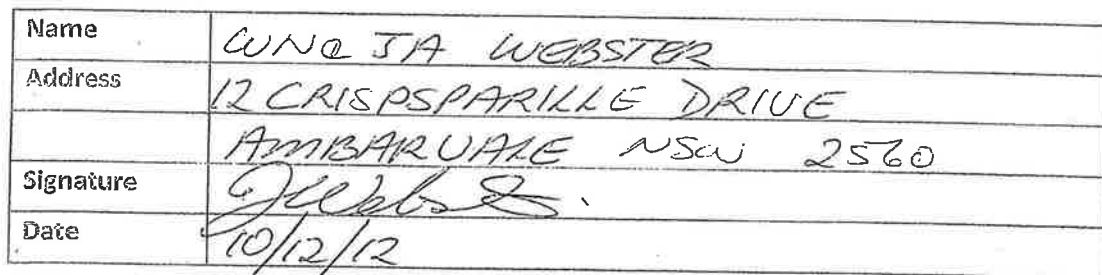 Name WN& JA WEBSTER
Address 12 CRISPSPARILLE DRIVE
AMBARVALE NSW 2560
Signature JWebster.
Date 10/12/12